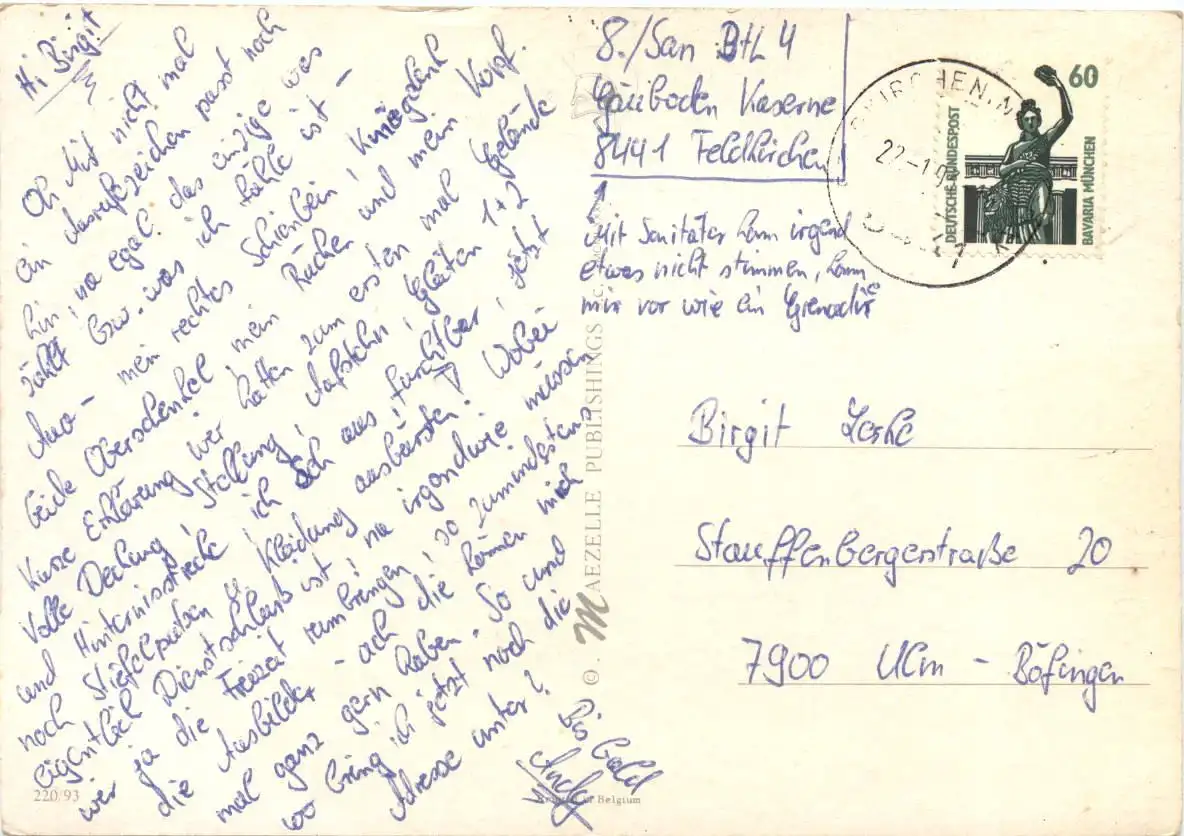 Hi Birgit
Oh Mist nicht mal
ein Ausrufszeichen passt noch
hin, na egal. das einzige was
zählt bzw. was ich fühle ist -
Aua - mein rechtes Schienbein, Kniegelenk
beide Oberschenkel, mein Rücken und mein Kopf.
Kurze Erklärung wir hatten zum ersten mal Gelände
Volle Deckung, Stellung, Aufstehn, Gleiten 1+2
und Hinternisstrecke, ich seh aus, furchtbar, jetzt
noch Stiefelputzen u. Kleidung ausbürsten! Wobei
eigentlich Dienstschluß ist, na irgendwie müssen
wir ja die Freizeit rumbringen, so zumindestens
die Ausbilder - ach die können mich
mal ganz gern haben. So und
wo bring ich jetzt noch die
Adresse unter?
Bis bald
Andy
8./San Btl 4
Gäuboden Kaserne
8441 Feldkirchen
Mit Sanitäter kann irgend
etwas nicht stimmen, komm
mir vor wie ein Grenadier
60
DEUTSCHE BUNDESPOST
BAVARIA MÜNCHEN
Birgit
Stauffenbergerstraße 20
7900 Ulm - Böfingen
© MAEZELLE PUBLISHINGS
220/93
Printed in Belgium